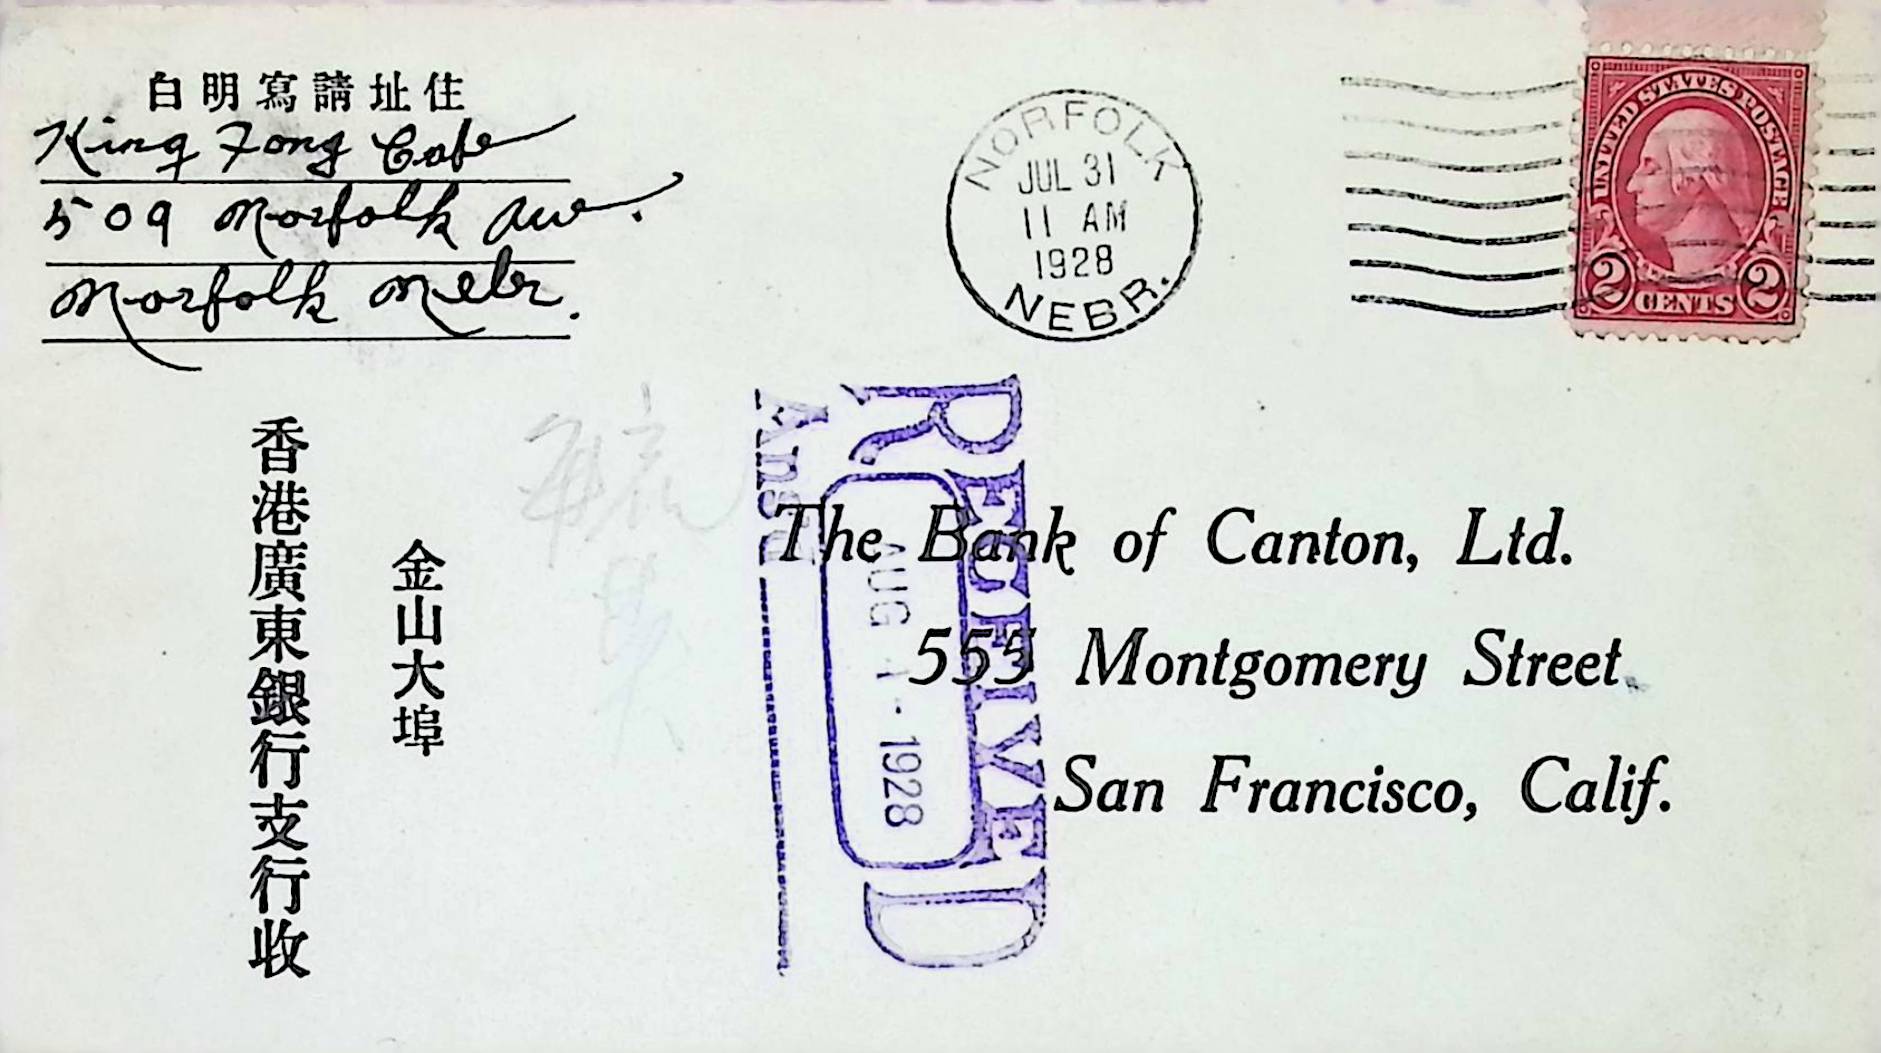 白明寫請址住
King Fong Cafe
509 Norfolk Ave.
Norfolk Nebr.
NORFOLK
JUL 31
11 AM
1928
NEBR.
UNITED STATES POSTAGE
2 CENTS 2
金山大埠
香港廣東銀行支行收
RECEIVED
AUG 4 - 1928
Ansd
The Bank of Canton, Ltd.
555 Montgomery Street
San Francisco, Calif.